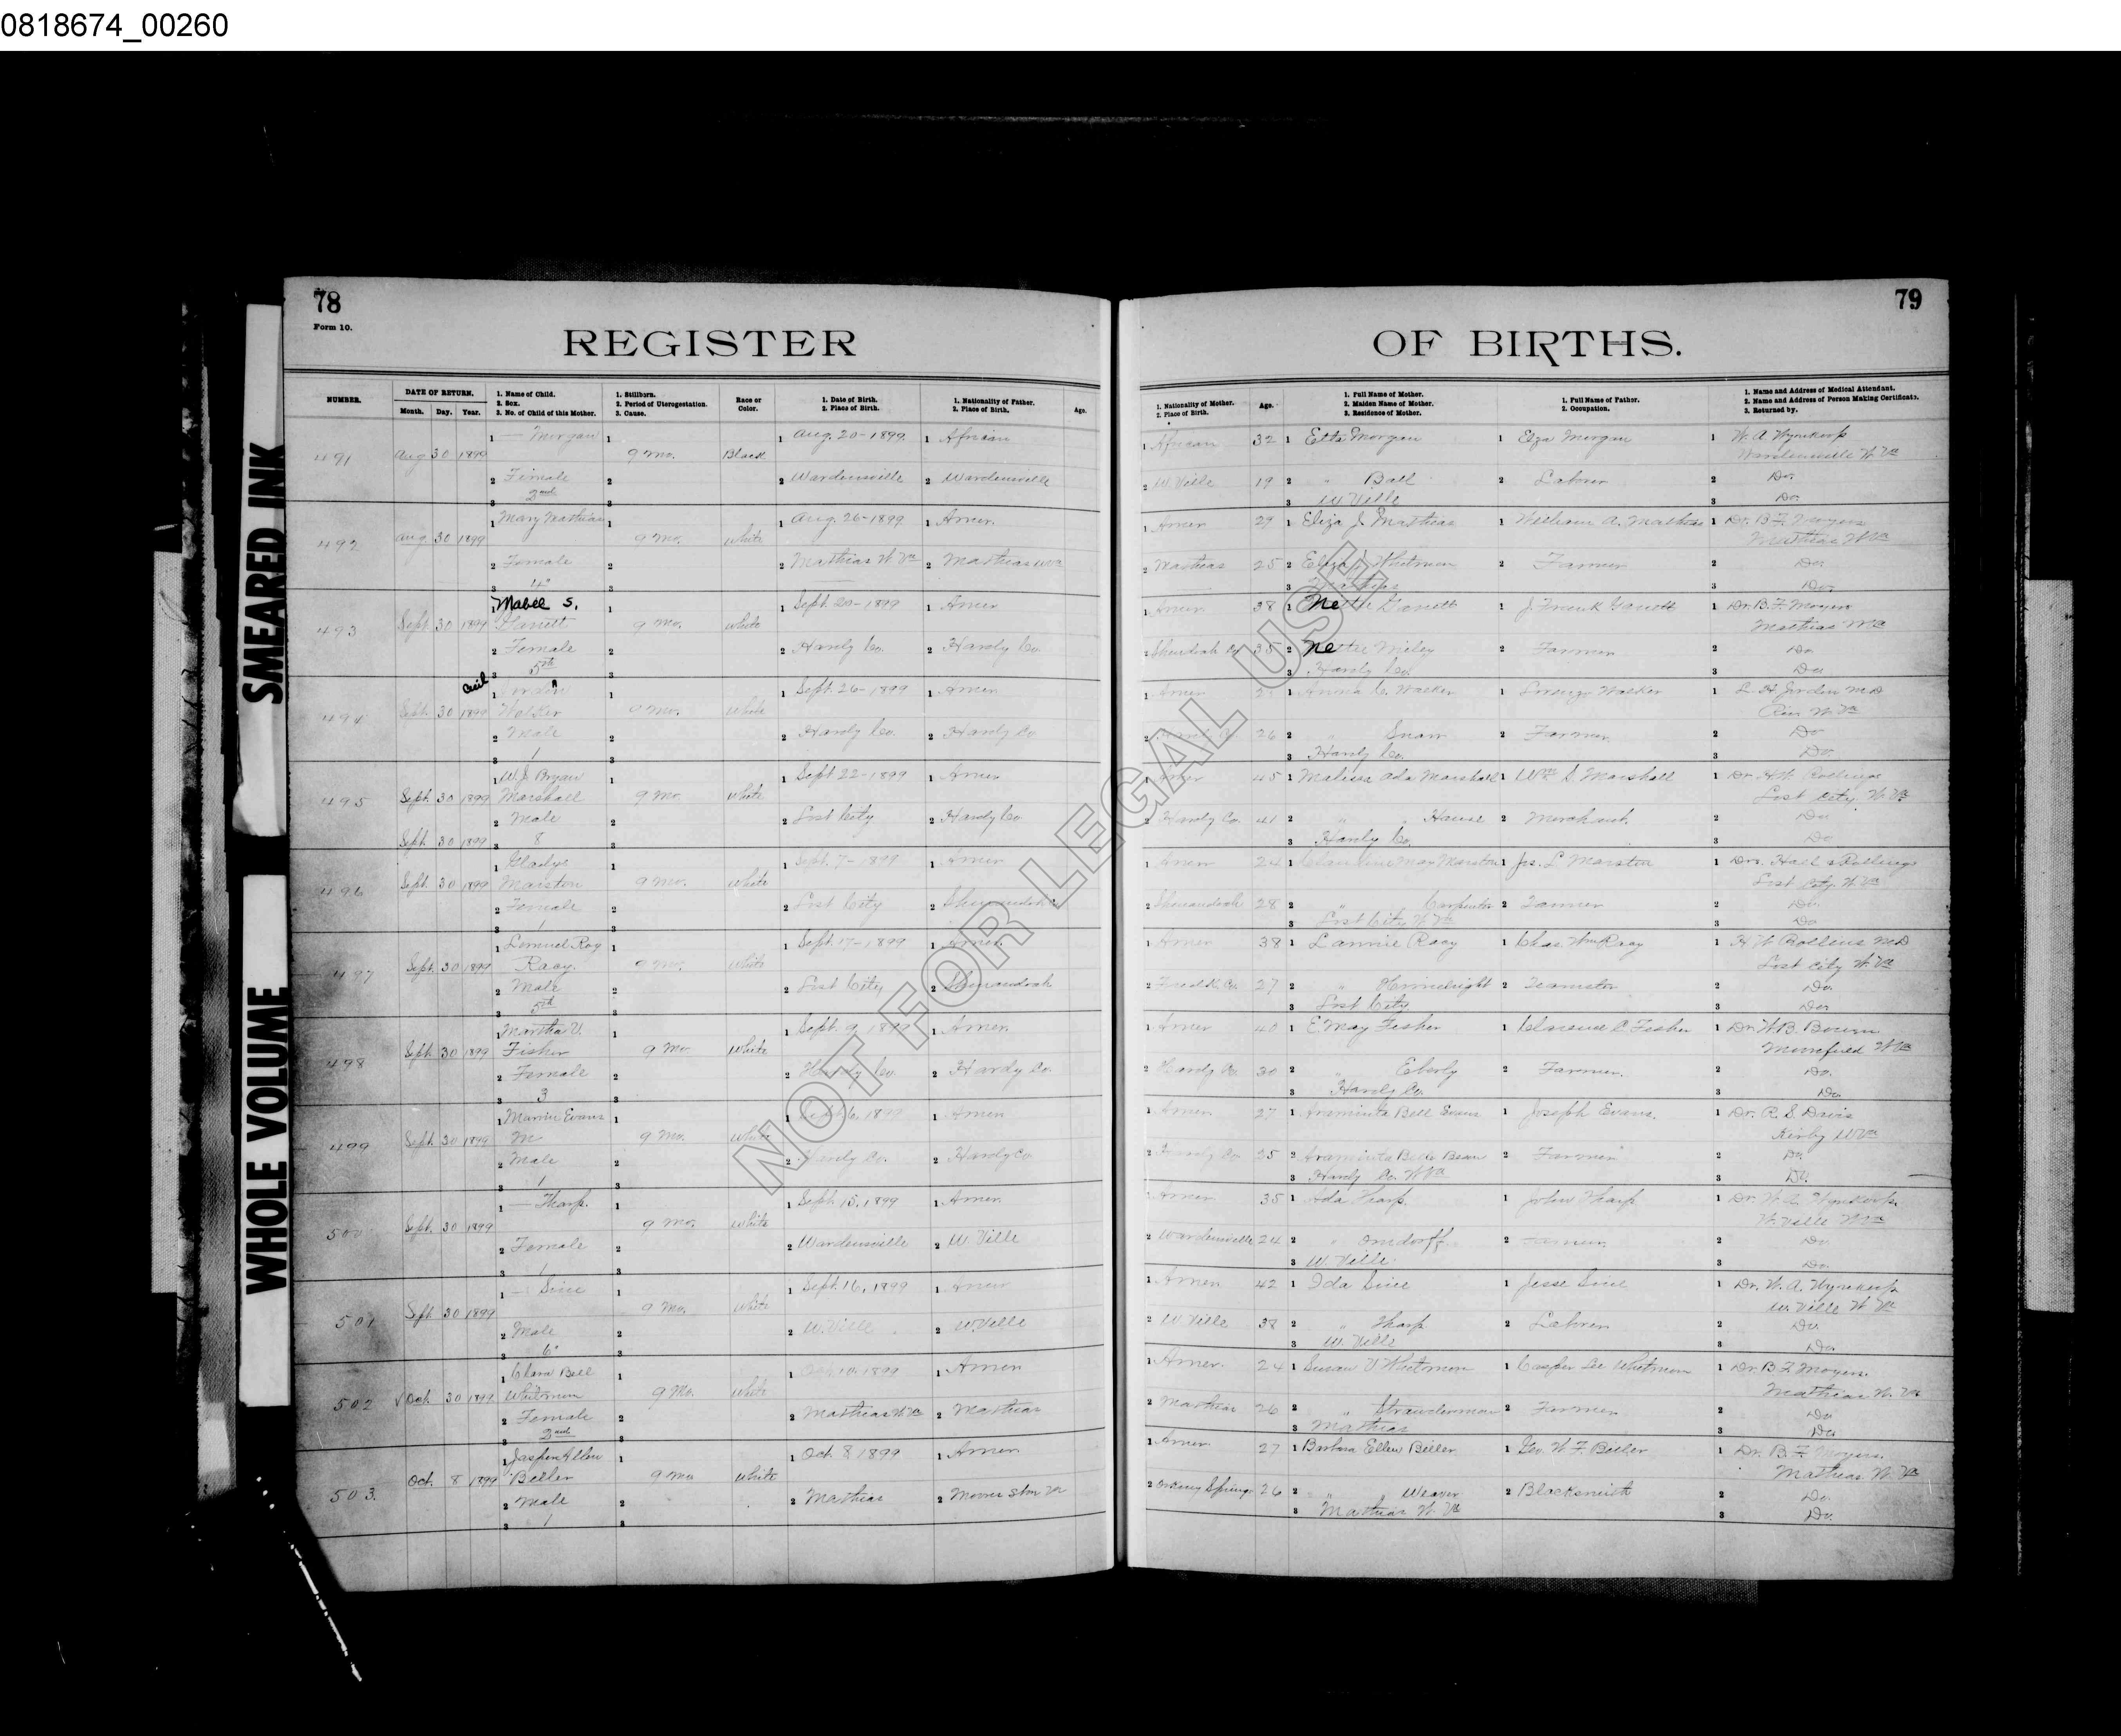 0818674_00260
SMEARED INK
WHOLE VOLUME
NOT FOR LEGAL USE
78
Form 10.
REGISTER
79
OF BIRTHS.
NUMBER.
DATE OF RETURN.
Month. Day. Year.
1. Name of Child.
2. Sex.
3. No. of Child of this Mother.
1. Stillborn.
2. Period of Uterogestation.
3. Cause.
Race or
Color.
1. Date of Birth.
2. Place of Birth.
1. Nationality of Father.
2. Place of Birth.
Age.
1. Nationality of Mother.
2. Place of Birth.
Age.
1. Full Name of Mother.
2. Maiden Name of Mother.
3. Residence of Mother.
1. Full Name of Father.
2. Occupation.
1. Name and Address of Medical Attendant.
2. Name and Address of Person Making Certificate.
3. Returned by.
491 Aug 30 1899 1 — Morgan 1 9 Mo. Black 1 Aug. 20-1899 1 African 1 African 32 1 Etta Morgan 1 Elza Morgan 1 W. A. Wynekoop
Wardensville W. Va
2 Female 2 2 Wardensville 2 Wardensville 2 W. Ville 19 2 " Ball 2 Labour 2 Do.
3 2nd 3 3 W Ville 3 Do.
492 Aug 30 1899 1 Mary Mathias 1 9 Mo. White 1 Aug. 26-1899 1 Amer. 1 Amer 29 1 Eliza J. Mathias 1 William A. Mathias 1 Dr. B. F. Moyers
Mathias W Va
2 Female 2 2 Mathias W Va 2 Mathias W Va 2 Mathias 25 2 Eliza J Whetmon 2 Farmer 2 Do
3 4" 3 3 Mathias 3 Do.
493 Sept. 30 1899 1 Mabel S. 1 9 Mo. White 1 Sept. 20-1899 1 Amer 1 Amer 38 1 Nettie Garrett 1 J. Frank Garrett 1 Dr. B. F. Moyers
Garrett Mathias W Va
2 Female 2 2 Hardy Co. 2 Hardy Co. 2 35 2 Nettie 2 Farmer 2 Do
3 5th 3 3 Hardy Co. 3 Do
494 Sept 30 1899 1 Jorden Cecil 1 9 Mo. White 1 Sept. 26-1899 1 Amer 1 Amer 1 Anna C. Walker 1 Lorenzo Walker 1 L. H. Jorden M D
Walker W. Va
2 Male 2 2 Hardy Co. 2 Hardy Co 26 2 2 Farmer 2 Do
3 1 3 3 Hardy Co. 3 Do
495 Sept. 30 1899 1 W. J. Bryan 1 9 Mo. White 1 Sept. 22-1899 1 Amer 1 Amer 45 1 Malissa Ada Marshall 1 Wm S Marshall 1 Dr. H W. Rollings
Marshall Lost City. W. Va
2 Male 2 2 Lost City 2 Hardy Co 2 Hardy Co. 41 2 " " 2 Merchant. 2 Do
Sept 30 1899 3 8 3 3 Hardy Co. 3 Do
496 Sept. 30 1899 1 Gladys 1 9 Mo. White 1 Sept. 7-1899 1 Amer 1 Amer 24 1 May Marston 1 Jas. L Marston 1 Drs. Hall & Rollings
Marston Lost City. W. Va
2 Female 2 2 Lost City 2 Shenandoah 2 Shenandoah 28 2 " Carpenter 2 Farmer 2 Do.
3 1 3 3 Lost City W Va 3 Do
497 Sept. 30 1899 1 Lemuel Roy 1 9 Mo. White 1 Sept. 17-1899 1 Amer. 1 Amer 38 1 Lannie Racy 1 Chas Wm Racy 1 H W Rollins M D
Racy. Lost City W. Va
2 Male 2 2 Lost City 2 Shenandoah 27 2 " 2 Teamster 2 Do.
3 5th 3 3 Lost City 3 Do.
498 Sept. 30 1899 1 Martha V. 1 9 Mo. White 1 Sept. 9, 1899 1 Amer. 1 Amer 40 1 E. May Fisher 1 Clarence C. Fisher 1 Dr. W. B.
Fisher Moorefield W Va
2 Female 2 2 Hardy Co. 2 Hardy Co. 2 Hardy Co. 30 2 " Eberly 2 Farmer. 2 Do.
3 3 3 3 Hardy Co. 3 Do.
499 Sept. 30 1899 1 Evans 1 9 Mo. White 1 Sept 6, 1899 1 Amer 1 Amer. 27 1 Araminta Bell Evans 1 Joseph Evans. 1 Dr. R. S Davis
M Kirby W Va
2 Male 2 2 Hardy Co. 2 Hardy Co 2 Hardy Co 25 2 Araminta Bell Bean 2 Farmer 2 Do
3 1 3 3 Hardy Co. W Va 3 Do.
500 Sept. 30 1899 1 — Tharp. 1 9 Mo. White 1 Sept. 15, 1899 1 Amer. 1 Amer. 35 1 Ada Tharp. 1 John Tharp 1 Dr. W. A. Wynekoop.
W. Ville W Va
2 Female 2 2 Wardensville 2 W. Ville 2 Wardensville 24 2 " Orndorff. 2 Farmer. 2 Do.
3 1 3 3 W. Ville. 3 Do.
501 Sept. 30 1899 1 — Sine 1 9 Mo. White 1 Sept. 16, 1899 1 Amer 1 Amer. 42 1 Ida Sine 1 Jesse Sine 1 Dr. W. A. Wynekoop
W. Ville W Va
2 Male 2 2 W. Ville 2 W. Ville 2 W Ville 38 2 " Tharp 2 Laborer 2 Do
3 6" 3 3 W. Ville 3 Do
502 √ Oct. 30 1899 1 Clara Bell 1 9 Mo. White 1 Oct 10, 1899 1 Amer 1 Amer. 24 1 Susan V Whetmon 1 Casper Lee Whetmon 1 Dr. B. F. Moyers.
Whitmon Mathias W. Va
2 Female 2 2 Mathias W. Va 2 Mathias 2 Mathias 26 2 " Strawderman 2 Farmer 2 Do
3 2nd 3 3 Mathias 3 Do
503. Oct. 8 1899 1 Jasper Allen 1 9 Mo White 1 Oct. 8 1899 1 Amer 1 Amer. 27 1 Barbara Ellen Biller 1 Geo. W. F. Biller 1 Dr. B. F. Moyers.
Beller Mathias W. Va
2 Male 2 2 Mathias 2 2 Orkney Springs 26 2 " " Weaver 2 Blacksmith 2 Do.
3 1 3 3 Mathias W. Va 3 Do.